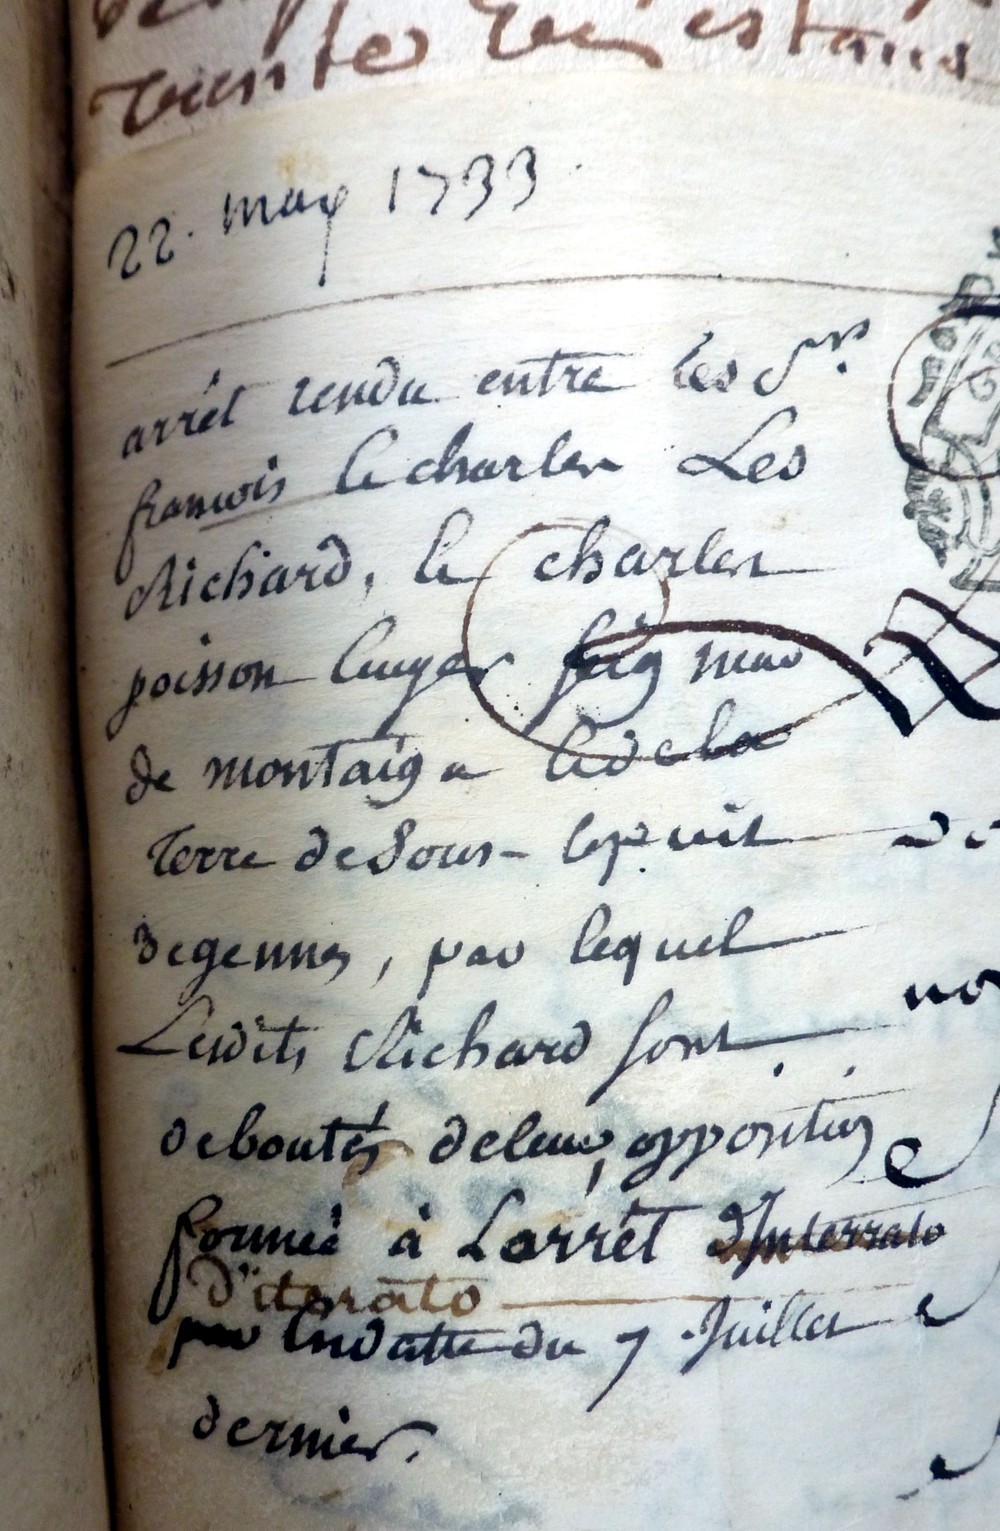 trente
22. may 1733
arrêt rendu entre les Srs.
francois le charles Les
Richard, le charles
poisson Seig mas
de montaigu de la
Terre de Sous- lepuit
Begennes, par lequel
Lesdits Richard sont
deboutés de leur opposition
formée à Larrêt d'Interrato
d'iterato
par Indatte du 7 Juillet
dernier.